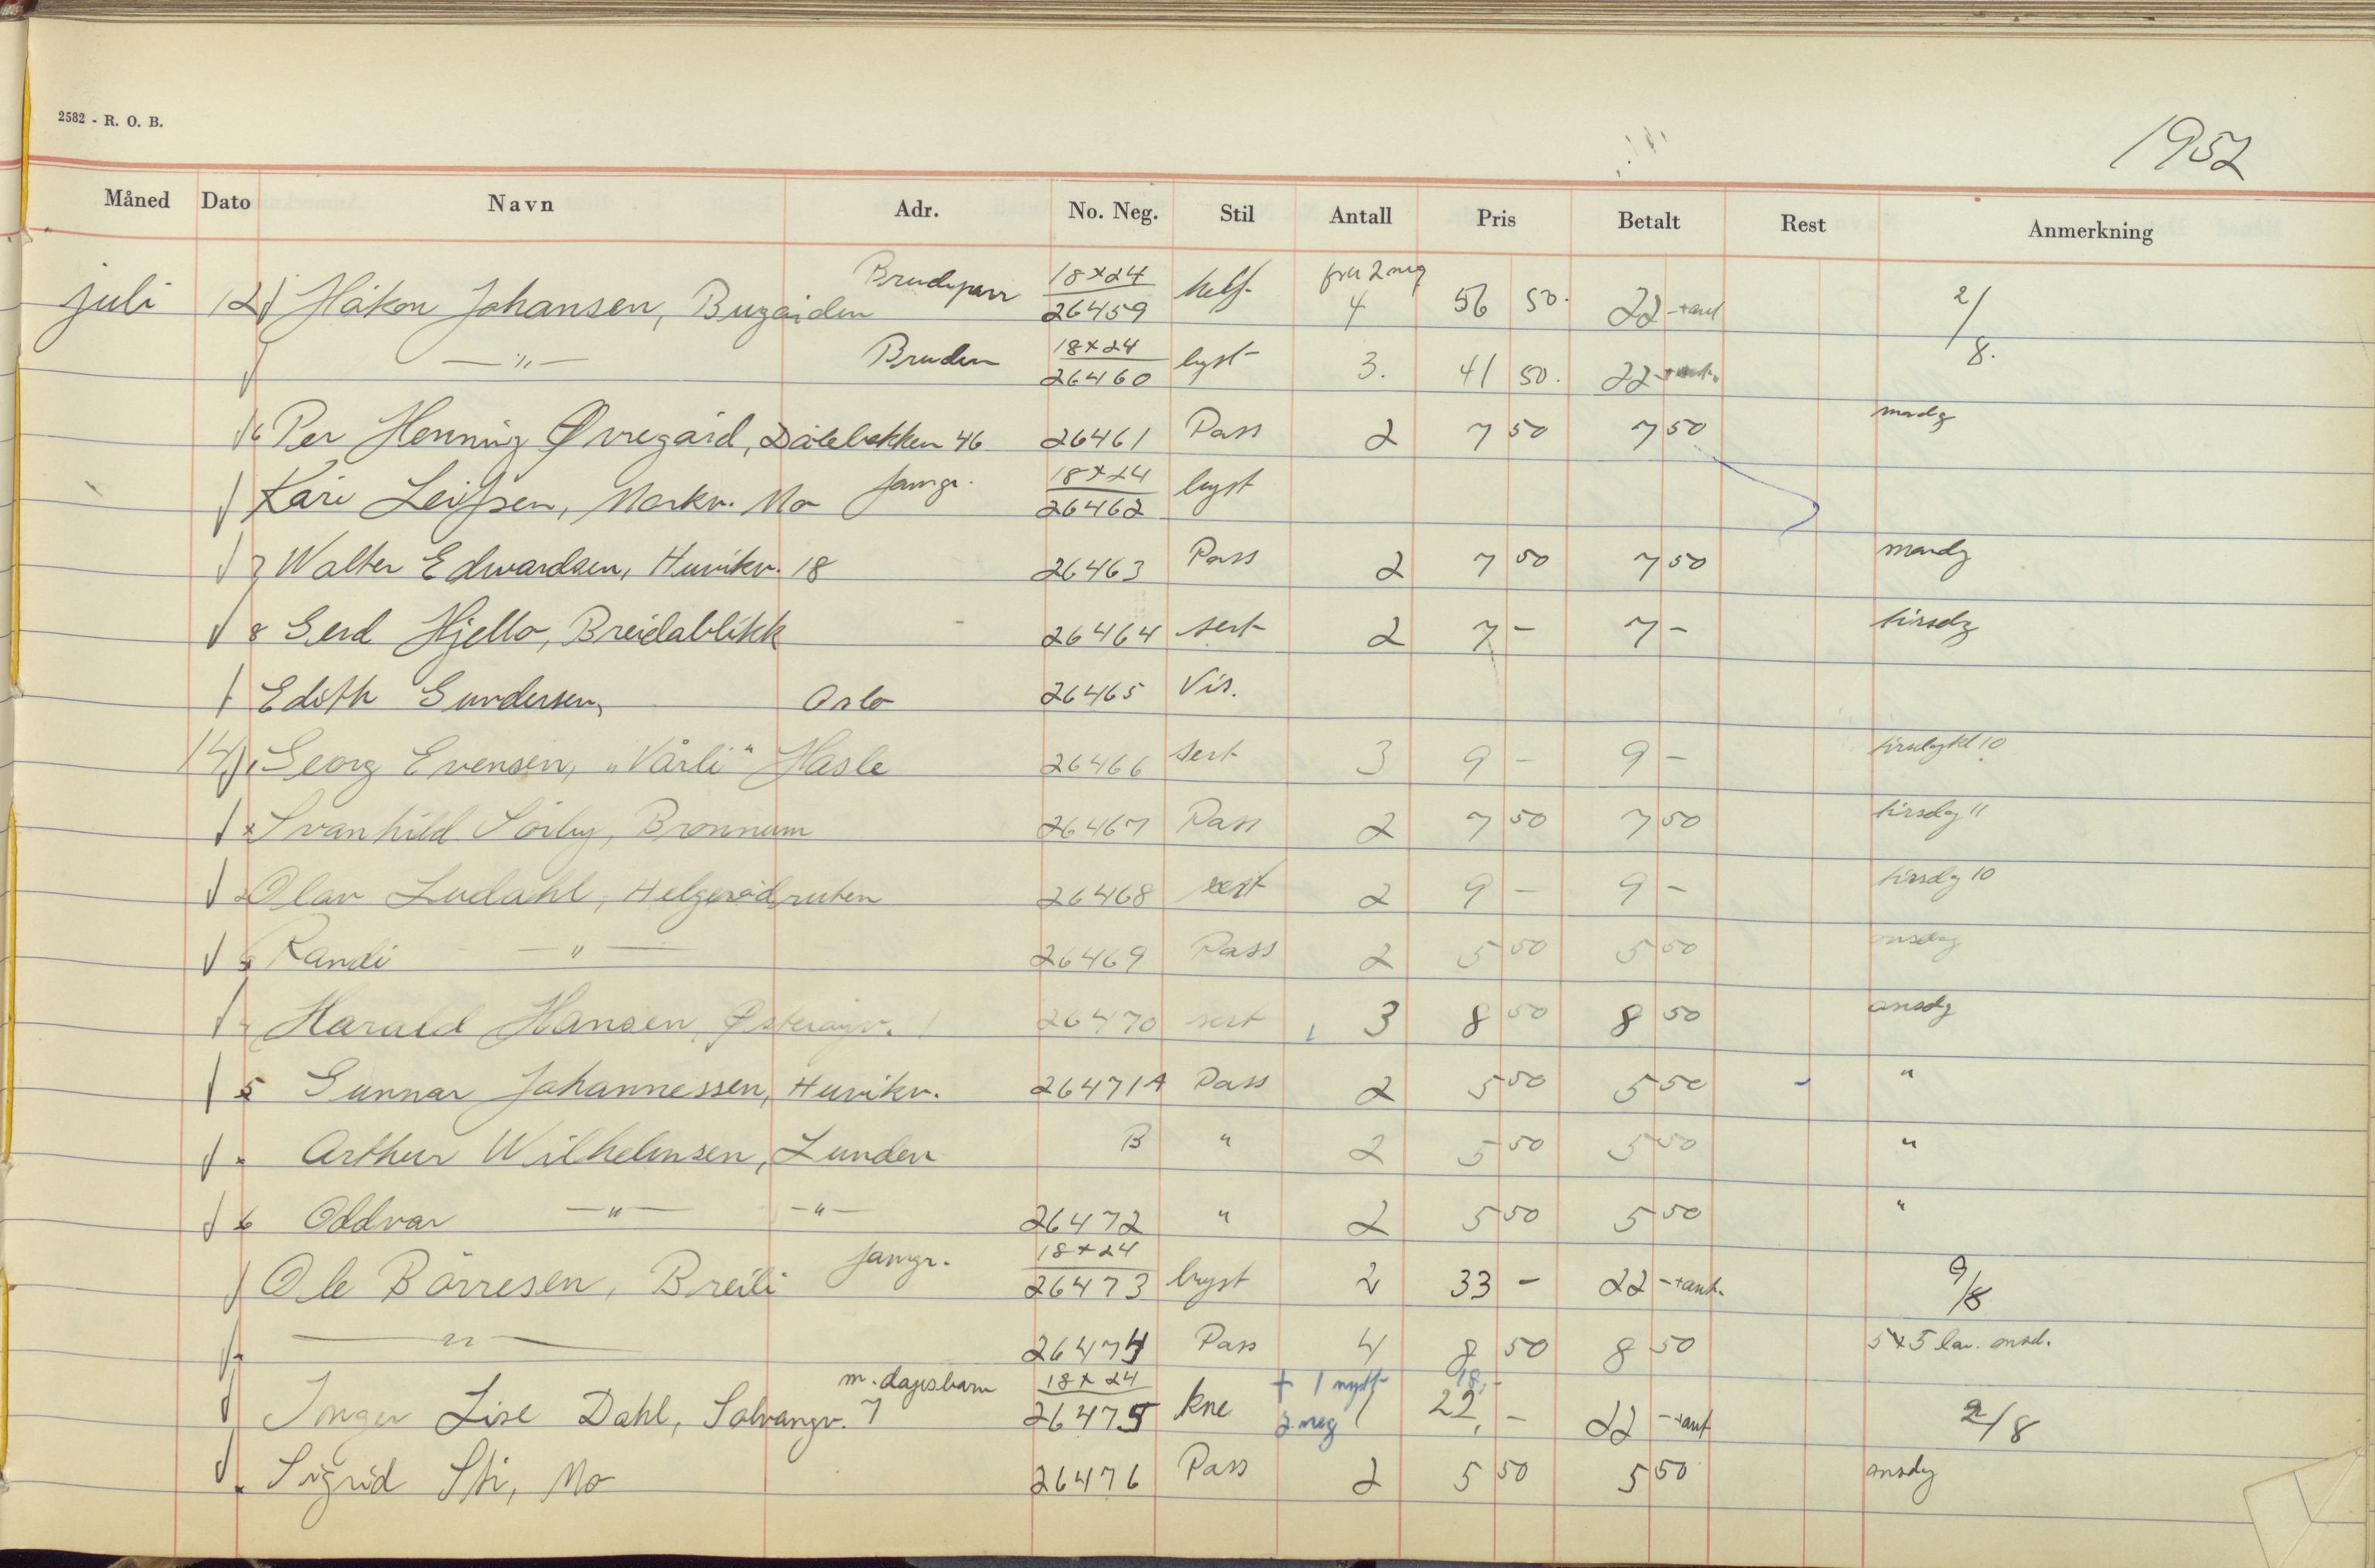 2582 - R. O. B.
1952
Måned Dato Navn Adr. No. Neg. Stil Antall Pris Betalt Rest Anmerkning
juli 12 Håkon Johansen, Bugården Brudepar 18x24 26459 helf. fra 2 neg 4 56 50. 22 - + ant 2/8.
— " — Bruden 18x24 26460 bryst 3. 41 50. 22 - + ant.
6 Per Henning Øvregård, Dålebekken 46 26461 Pass 2 7 50 7 50 mandg
Kari Leifsen, Markv. Mo famgr. 18x24 26462 bryst
7 Walter Edwardsen, Hunikv. 18 26463 Pass 2 7 50 7 50 mandg
8 Gerd Hjello, Breidablikk 26464 sert 2 7 - 7 - tirsdg
Edith Gundersen, Oslo 26465 Vis.
14 Georg Evensen, "Vårli" Hasle 26466 sert 3 9 - 9 - tirsdg kl 10
Svanhild Sörby, Bronnum 26467 Pass 2 7 50 7 50 tirsdg 11
Olav Ludahl, Helgerödruten 26468 sert 2 9 - 9 - tirsdg 10
Randi — " — 26469 Pass 2 5 50 5 50 onsdag
Harald Hansen, 26470 sert 3 8 50 8 50 onsdg
5 Gunnar Johannessen, Hunikv. 26471 A Pass 2 5 50 5 50 "
Arthur Wilhelmsen, Lunden B " 2 5 50 5 50 "
6 Oddvar — " — — " — 26472 " 2 5 50 5 50 "
Ole Börresen, Breili famgr. 18x24 26473 bryst 2 33 - 22 - + ant. 9/8
— " — 26474 Pass 4 8 50 8 50 5x5 lav. onsd.
Inger Lise Dahl, Solvangv. 7 m. dåpsbarn 18x24 26475 kne + 1 nytt 2 neg 1 18,- 22,- 22 - + ant 2/8
Sigrid Sti, Mo 26476 Pass 2 5 50 5 50 onsdg